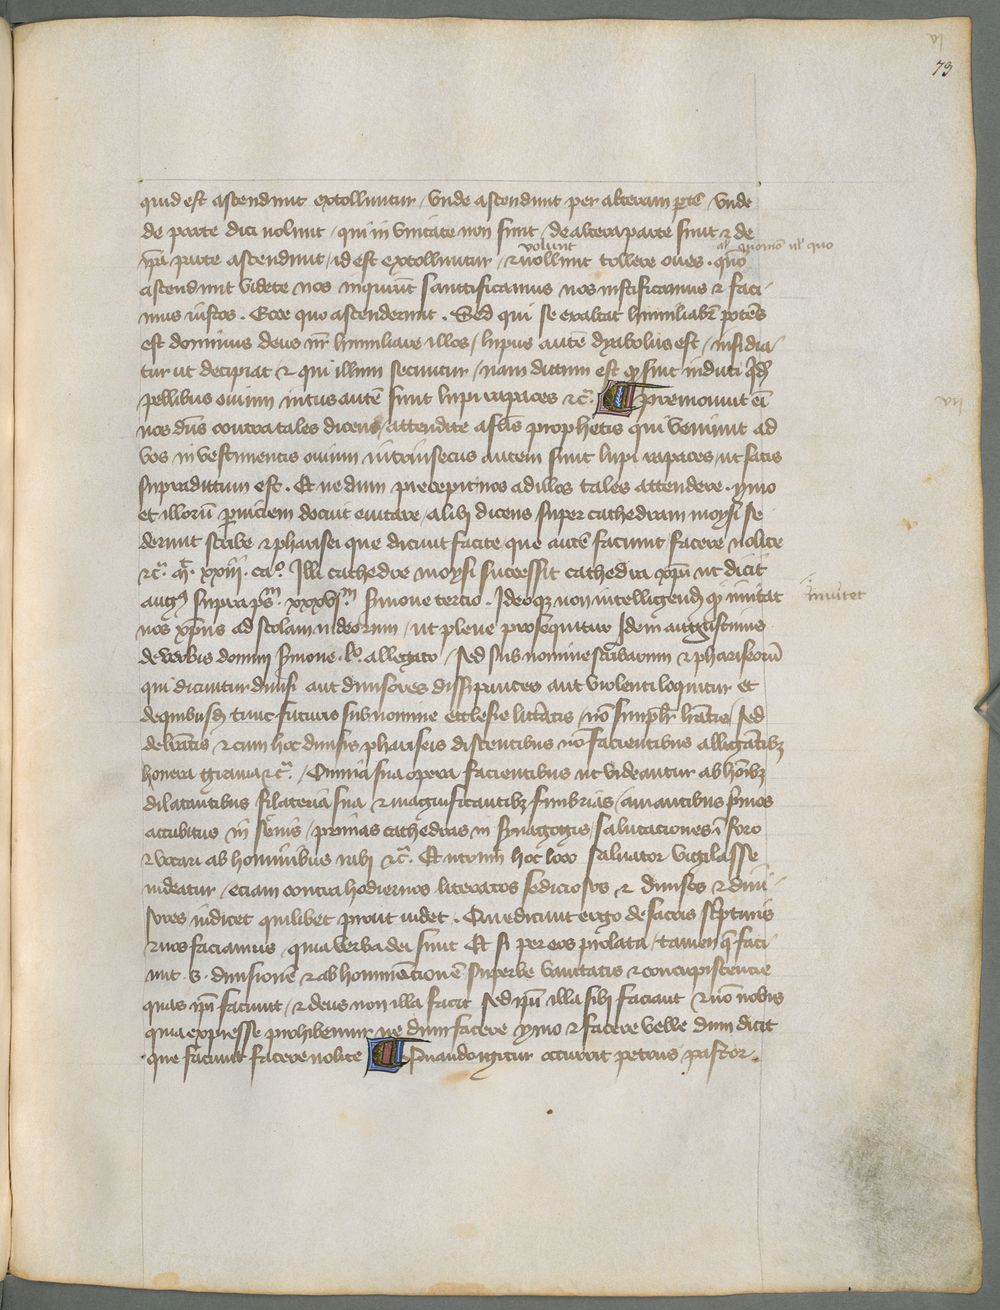 79
quid est ascendunt extolluntur / vnde ascendunt per alteram ptē / vnde
de parte dici nolunt / qui in vnitate non sunt / de altera parte sunt ⁊ de
volunt
al' quomō ul' quo
ip̄a parte ascendunt / id est extolluntur / ⁊ nollunt tollere oues . quō
ascendunt videte nos inquiūt sanctificamus nos iustificamus ⁊ faci-
mus iustos . Ecce quo ascenderunt . Sed qui se exaltat humiliabr̄ potēs
est dominus deus nr̄ humiliare illos / lupus autē dyabolus est / insidia-
tur ut decipiat ⁊ qui illum secuntur / nam dictum est qꝫ sunt induti qdē
pellibus ouium intus autē sunt lupi rapaces ⁊c̄. premonuit eī
nos dn̄s contra tales dicens / attendite a fl̄is prophetis qui veniunt ad
vos in vestimentis ouium intrinsecus autem sunt lupi rapaces / ut satis
supradictum est . Et nedum precepit nos ad illos tales attendere . ymo
et illorū pniciem docuit euitare / alibi dicens super cathedram moysi se-
derunt scribe ⁊ pharisei que dicunt facite que autē faciunt facere nolite
⁊c̄. mt̄. xxiii. ca°. Illi cathedre moysi successit cathedra xpī ut dicit
augꝰ supra ps̄. xxxvi.m sermone tercio . Ideoqꝫ non intelligendū qꝫ mittat
inuitet
nos xpūs ad scolam iudeorum / ut plene prosequitur Idem augustinus
de verbis domini sermone . l°. allegato / sed sub nomine scribarum ⁊ phariseorū
qui dicuntur diuisi aut diuisores dissipantes aut violenti loquitur et
de quibusdā tunc futuris sub nomine ecclesie litteratis / nō simplr̄ lrātis / sed
de lrātis ⁊ cum hoc diuisis phariseis dicentibus nō facientibus alligātibꝫ
honera grauia ⁊c̄. / Omnia sua opera facientibus ut videantur ab hōībꝫ
dilatantibus filateria sua ⁊ magnificantibꝫ fimbrias / amantibus prīmos
accubitus in cēnis / primas cathedras in synagogis / salutaciones ī foro
⁊ vocari ab hominibus rabi ⁊c̄. Et utrum hoc loco saluator vigilasse
videatur / eciam contra hodiernos literatos sediciosos ⁊ diuisos ⁊ diui-
sores iudicet quilibet prout videt . Que dicunt ergo de sacris scripturis
⁊ nos faciamus / quia verba dei sunt Et si per eos prolata / tamen que faci-
unt .s. diuisionē ⁊ abhominacionē superbe vanitatis ⁊ concupiscencie
quas ip̄i faciunt / ⁊ deus non illa facit sed ip̄i illa sibi faciant ⁊ nō nobis
quia expresse prohibemur ne dum facere ymo ⁊ facere velle dum dicit
que faciunt facere nolite Quando igitur accurrit petrus pastor .